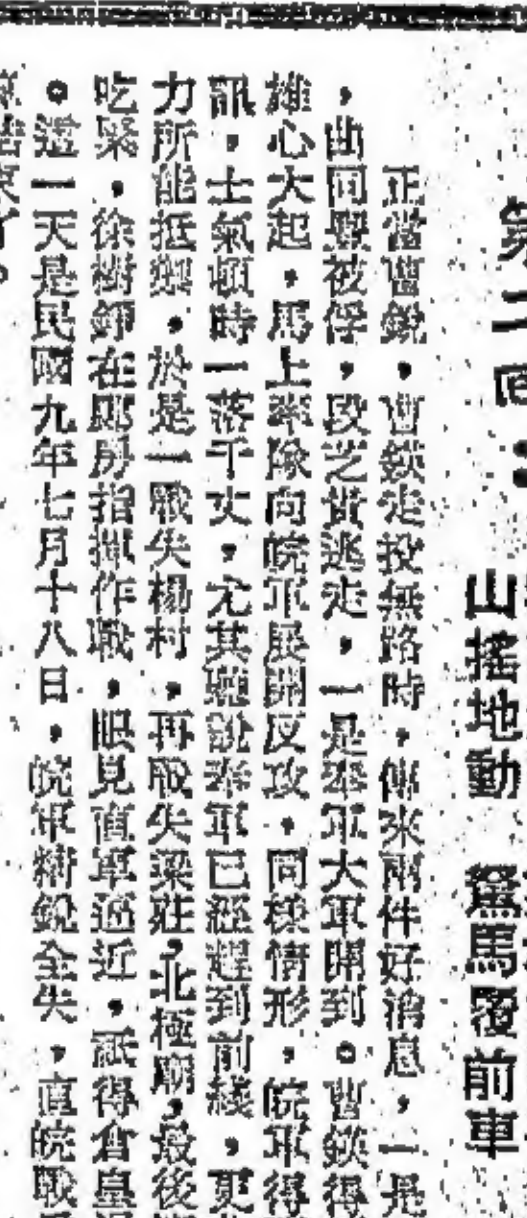 第二回
山搖地動 駑馬覆前車
正當曹銳,曹鍈走投無路時,傳來兩件好消息,一是
,曲同豐被俘,段芝貴逃走,一是奉軍大軍開到。曹鍈得
雄心大起,馬上率隊向皖軍展開反攻。同樣情形,皖軍得
訊,士氣頓時一落千丈,尤其聽說奉軍已經趕到前綫,更
力所能抵禦,於是一戰失楊村,再戰失梁莊,北極廟,最後
吃緊,徐樹錚在廊房指揮作戰,眼見直軍逼近,祇得倉皇
。這一天是民國九年七月十八日,皖軍精銳全失,直皖戰